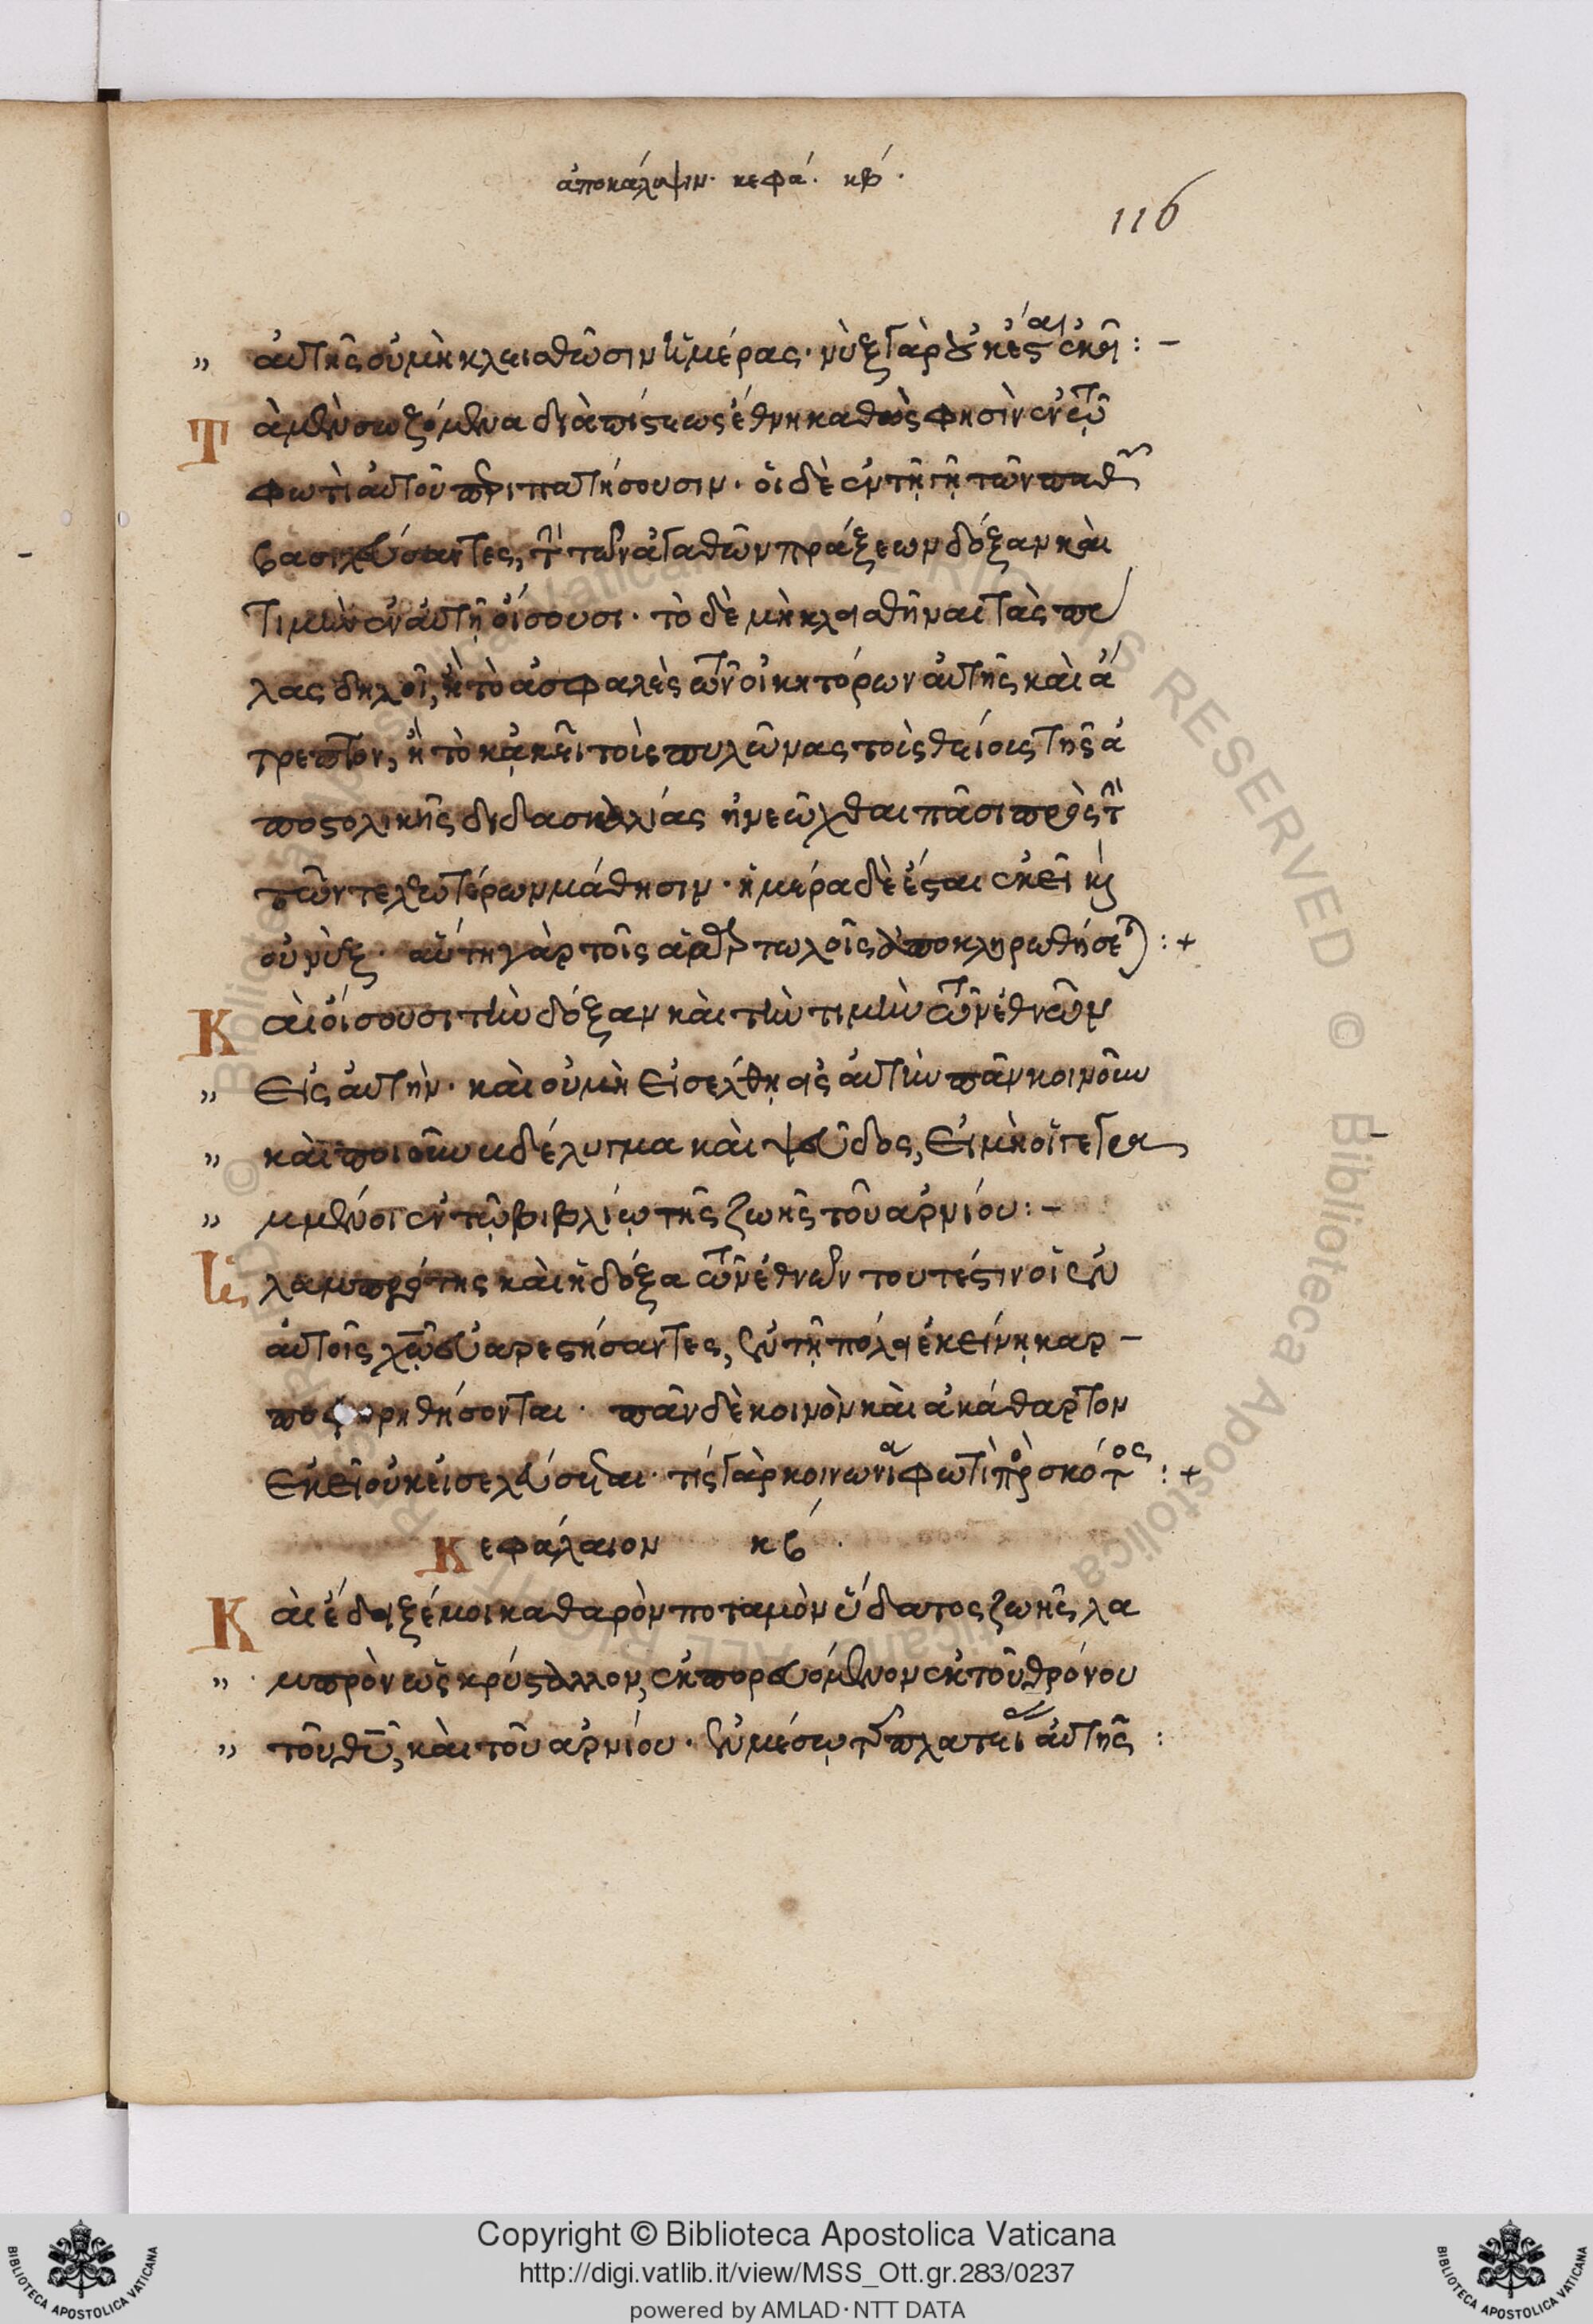 ἀποκάλυψιν. κεφά. κβ.
116
αὐτῆς οὐ μὴ κλεισθῶσιν ἡμέρας· νὺξ γὰρ οὐκ ἔσται ἐκεῖ :-
Τὰ μὲν σωζόμενα διὰ πίστεως ἔθνη καθώς φησὶν ἐν τῷ
φωτὶ αὐτοῦ περιπατήσουσιν· οἱ δὲ ἐν τῇ γῇ τῶν παθῶν
βασιλεύσαντες, τὴν τῶν ἀγαθῶν πράξεων δόξαν καὶ
τιμὴν ἐν αὐτῇ οἴσουσι· τὸ δὲ μὴ κλεισθῆναι τὰς πύ
λας δηλοῖ, ἢ τὸ ἀσφαλὲς τῶν οἰκητόρων αὐτῆς καὶ ἄ
τρεπτον, ἢ τὸ κἀκεῖ τοὺς πυλῶνας τοὺς θείους τῆς ἀ
ποστολικῆς διδασκαλίας ἠνεῶχθαι πᾶσι πρὸς τὴν
τῶν τελεωτέρων μάθησιν· ἡμέρα δὲ ἔσται ἐκεῖ καὶ
οὐ νύξ· αὕτη γὰρ τοῖς ἁμαρτωλοῖς ἀποκληρωθήσεται :+
Καὶ οἴσουσι τὴν δόξαν καὶ τὴν τιμὴν τῶν ἐθνῶν
εἰς αὐτήν· καὶ οὐ μὴ εἰσέλθῃ εἰς αὐτὴν πᾶν κοινοῦν
καὶ ποιοῦν βδέλυγμα καὶ ψεῦδος, εἰ μὴ οἱ γεγρα
μμένοι ἐν τῷ βιβλίῳ τῆς ζωῆς τοῦ ἀρνίου :-
Ἡ λαμπρότης καὶ ἡ δόξα τῶν ἐθνῶν τουτέστιν οἱ ἐν
αὐτοῖς χω εὐαρεστήσαντες, ἐν τῇ πόλει ἐκείνῃ καρ-
ποφορηθήσονται· πᾶν δὲ κοινὸν καὶ ἀκάθαρτον
ἐκεῖ οὐκ εἰσελεύσεται· τίς γὰρ κοινωνία φωτὶ πρὸς σκότος :+
Κεφάλαιον κβ.
Καὶ ἔδειξέ μοι καθαρὸν ποταμὸν ὕδατος ζωῆς λα
μπρὸν ὡς κρύσταλλον, ἐκπορευόμενον ἐκ τοῦ θρόνου
τοῦ θυ, καὶ τοῦ ἀρνίου· ἐν μέσῳ τῆς πλατείας αὐτῆς :
Copyright © Biblioteca Apostolica Vaticana
http://digi.vatlib.it/view/MSS_Ott.gr.283/0237
powered by AMLAD·NTT DATA